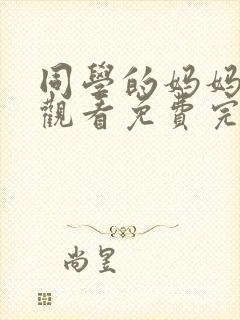 同學的媽媽
觀看免費完
尚昱